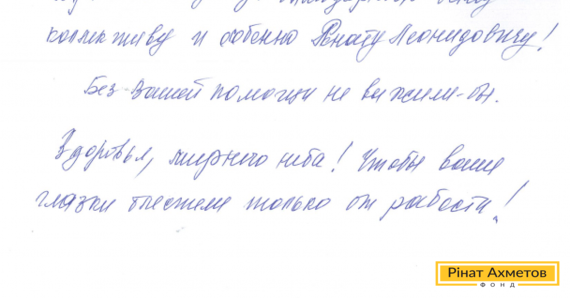 коллективу и особенно Ринату Леонидовичу!
Без вашей помощи не выжили-бы.
Здоровья, мирного неба! Чтобы ваши
глазки блестели только от радости!
Рінат Ахметов
ФОНД